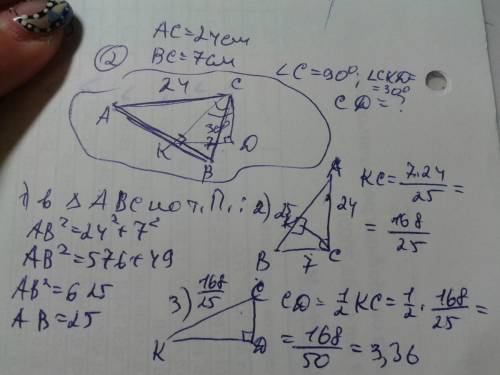 AC=24см
② BC=7см
∠C=90°; ∠CKD=
=30°
CD=?
24
C
A
30°
K
7
D
B
1) в Δ ABC по т. П.:
AB²=24²+7²
AB²=576+49
AB²=625
AB=25
2)
A
25
24
K
B
7
C
KC=7·24/25=
=168/25
3)
168/25
C
K
D
CD=1/2 KC=1/2·168/25=
=168/50=3,36